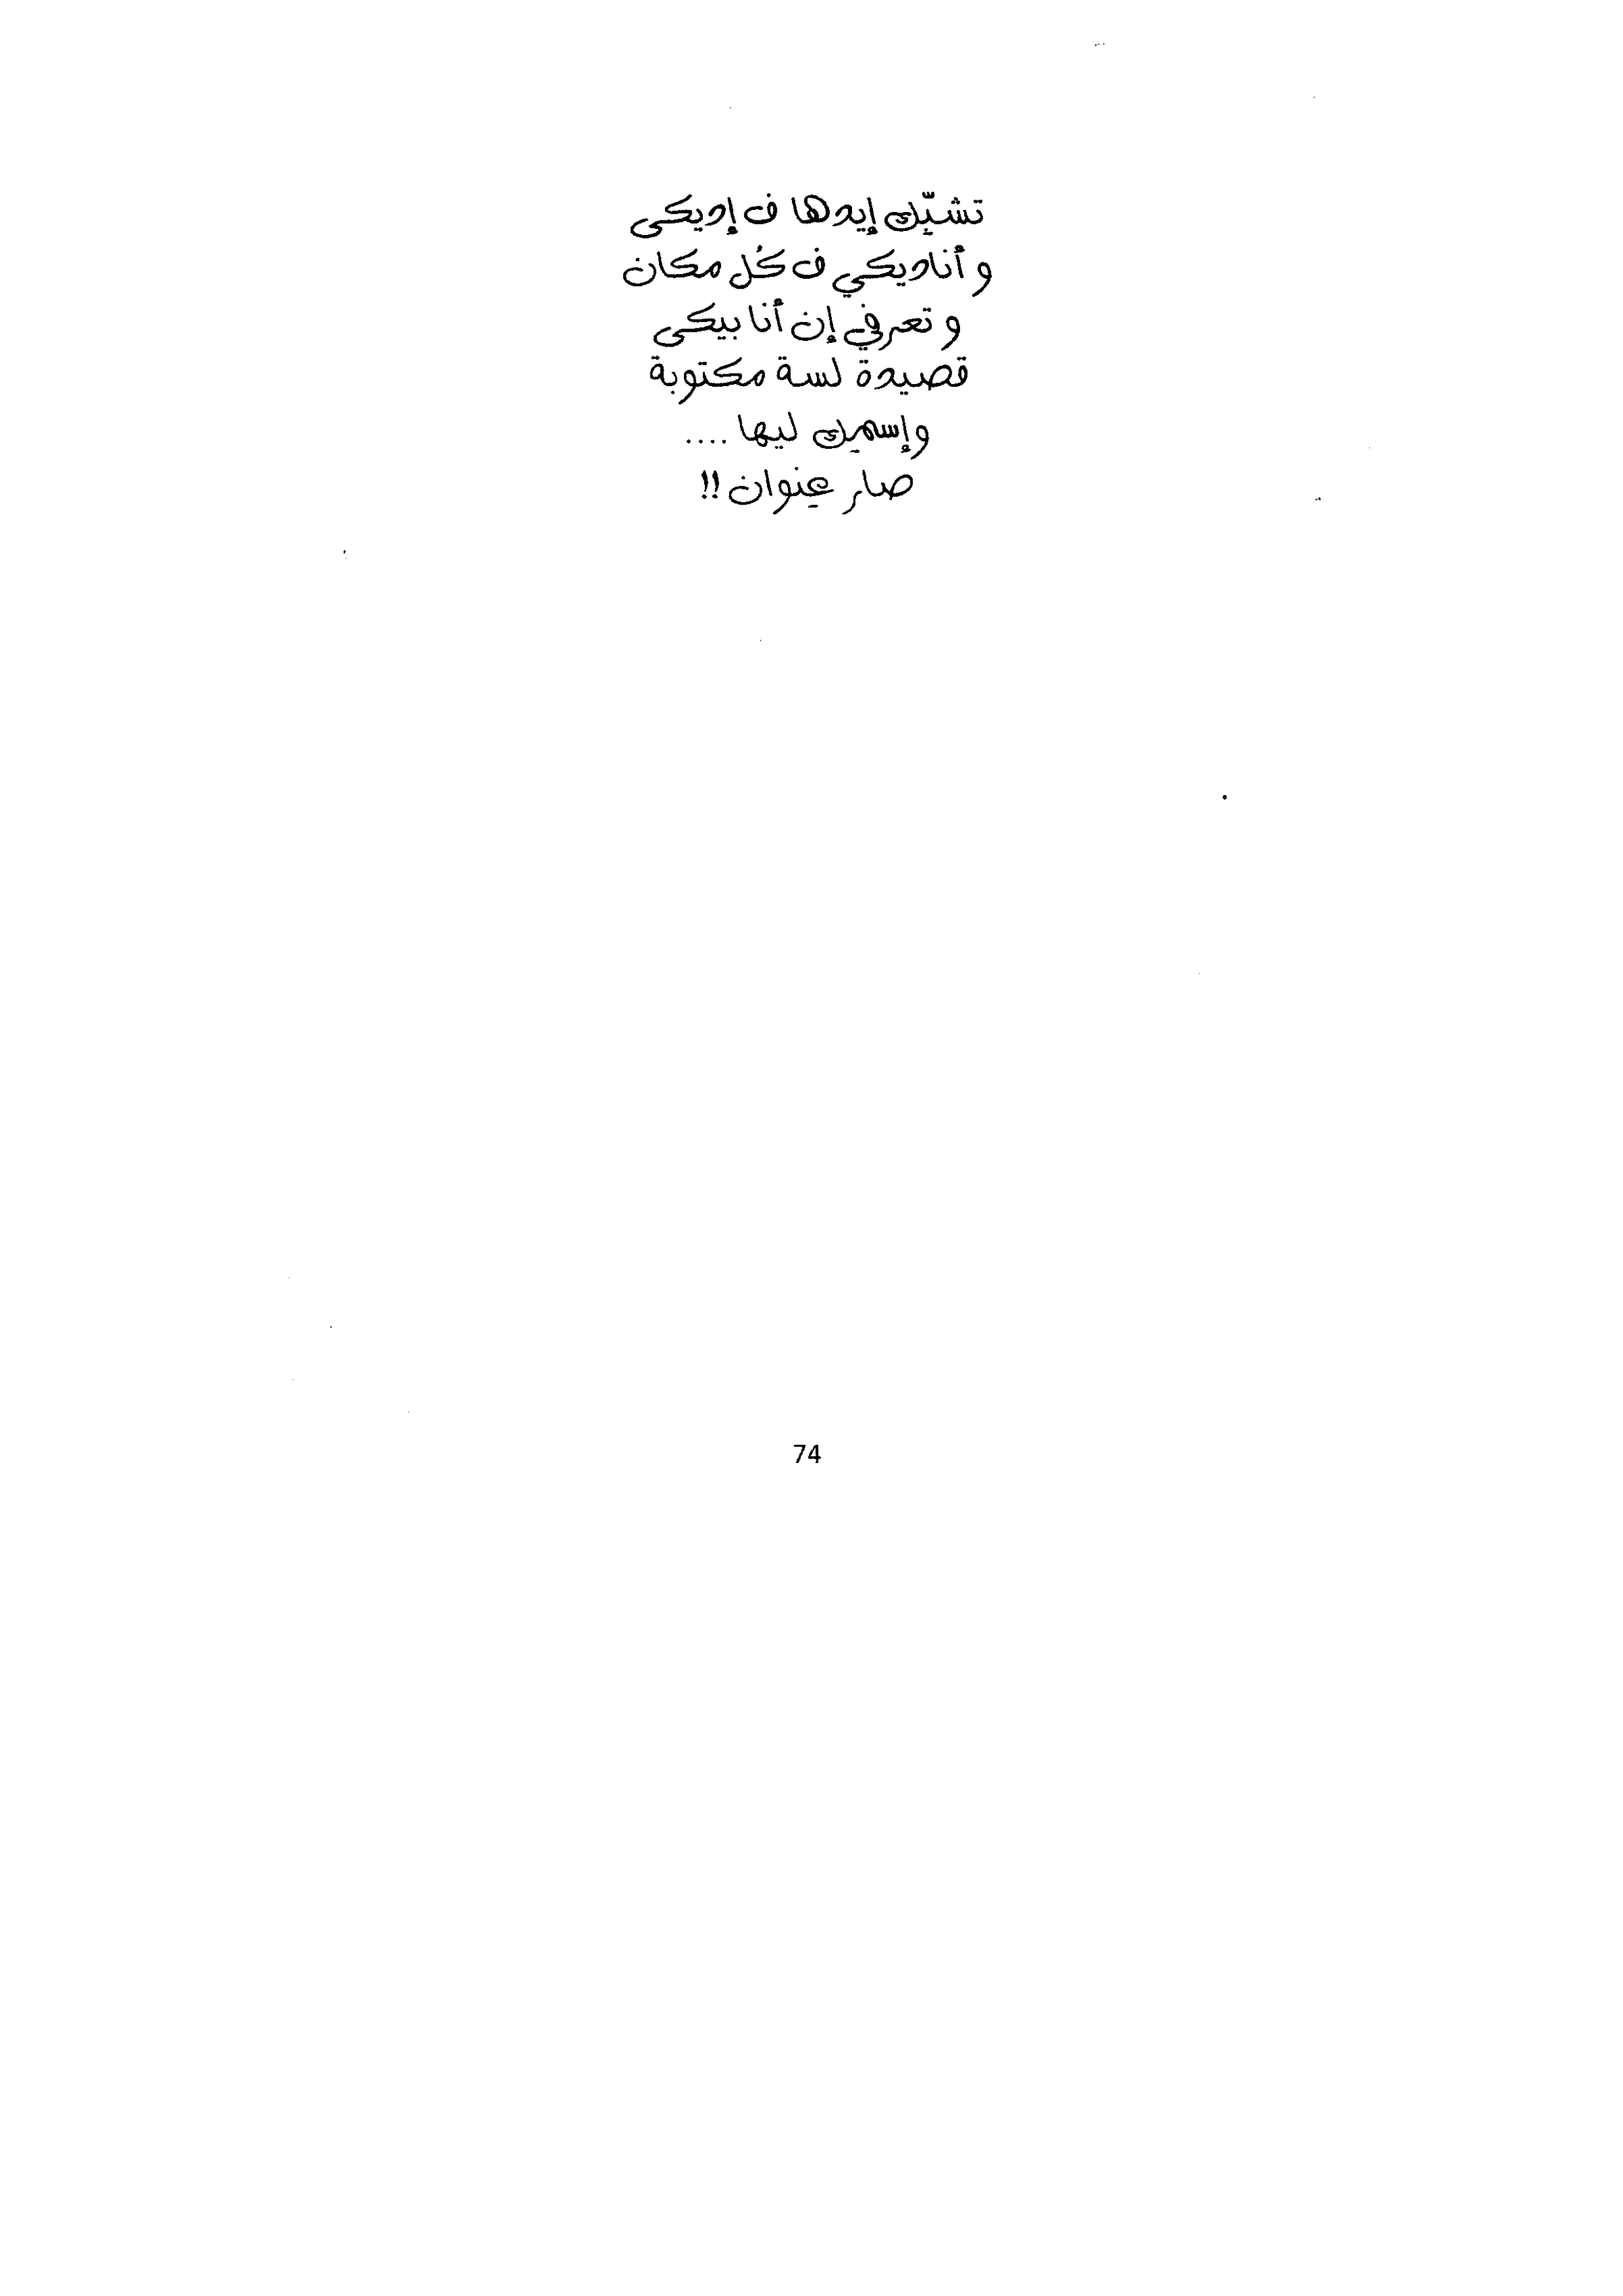 تشبّك إيدها ف إديكى
و أناديكي ف كُل مكان
و تعرفي إن أنا بيكى
قصيدة لسة مكتوبة
وإسمِك ليها ....
صار عِنوان !!
74